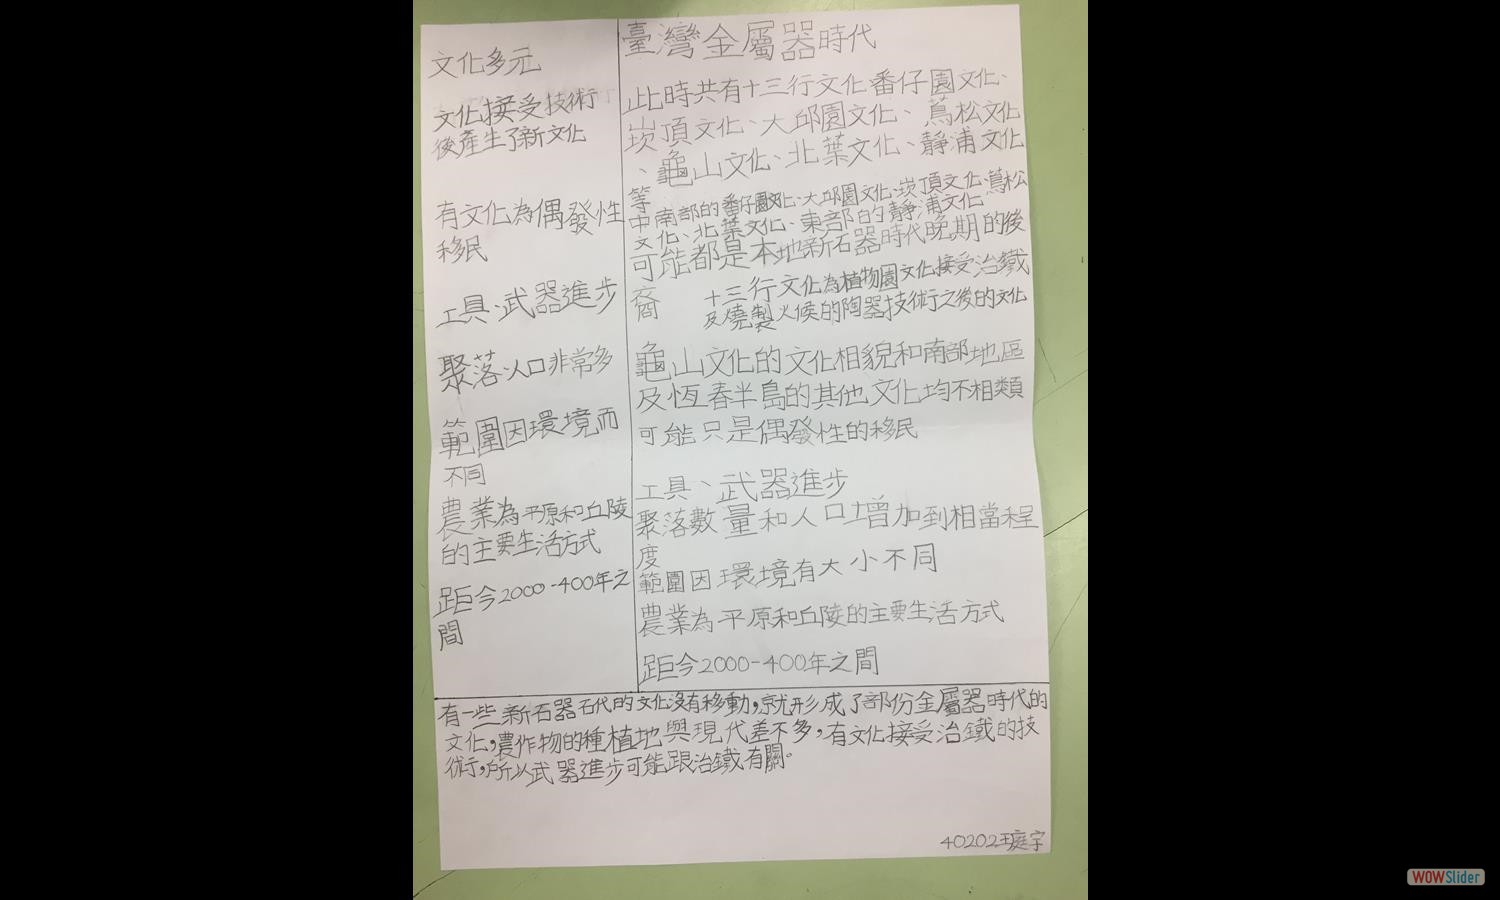 文化多元
文化接受技術
後產生了新文化
有文化為偶發性
移民
工具、武器進步
聚落人口非常多
範圍因環境而
不同
農業為平原和丘陵
的主要生活方式
距今2000-400年之
間
臺灣金屬器時代
此時共有十三行文化、番仔園文化、
崁頂文化、大邱園文化、蔦松文化
、龜山文化、北葉文化、靜浦文化
等
中南部的番仔園文化、大邱園文化、崁頂文化、蔦松
文化、北葉文化、東部的靜浦文化
可能都是本地新石器時代晚期的後
裔
十三行文化為植物園文化接受冶鐵
及燒製火候的陶器技術之後的文化
龜山文化的文化相貌和南部地區
及恆春半島的其他文化均不相類
可能只是偶發性的移民
工具、武器進步
聚落數量和人口增加到相當程
度
範圍因環境有大小不同
農業為平原和丘陵的主要生活方式
距今2000-400年之間
有一些新石器石代的文化沒有移動,就形成了部份金屬器時代的
文化,農作物的種植地與現代差不多,有文化接受冶鐵的技
術,所以武器進步可能跟冶鐵有關。
40202王庭宇
WOWSlider